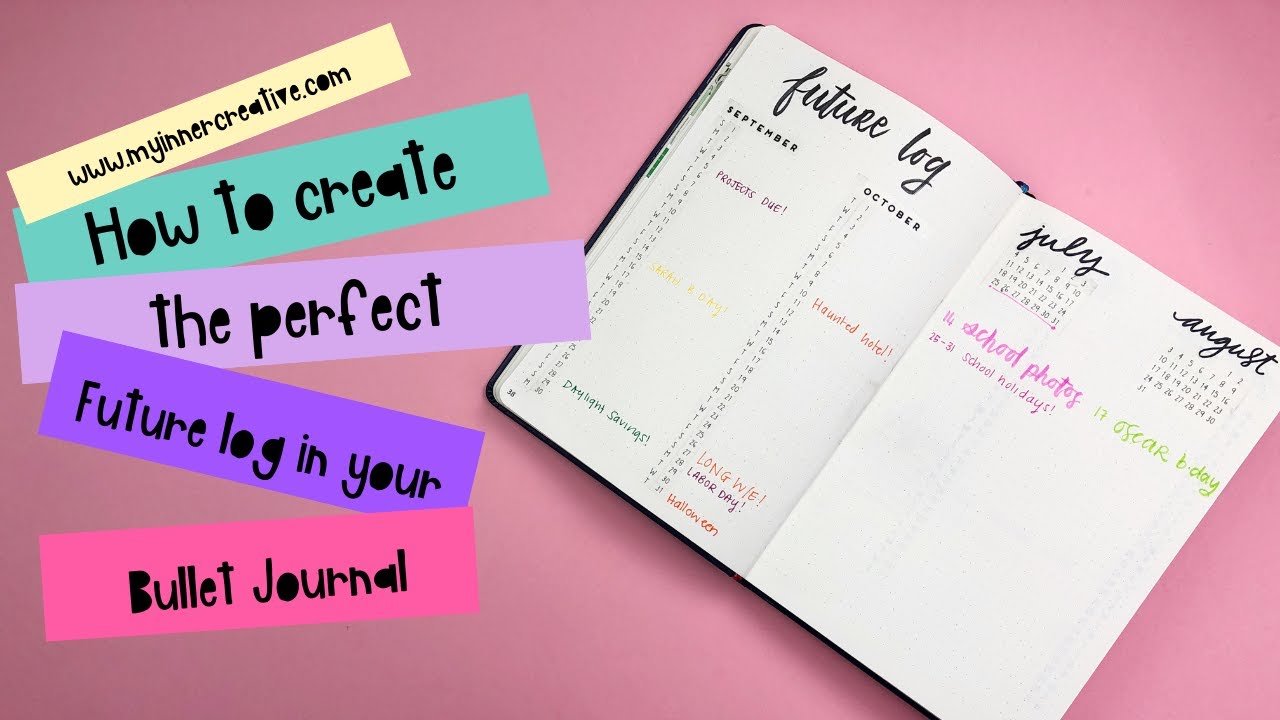 www.myinnercreative.com
How to create
the perfect
Future log in your
Bullet Journal
future log
SEPTEMBER
PROJECTS DUE!
SARAH B.DAY!
Daylight Savings!
38
OCTOBER
Haunted hotel!
LONG W/E!
LABOR DAY!
Halloween
july
14 school photos
25-31 school holidays!
august
17 OSCAR b.day